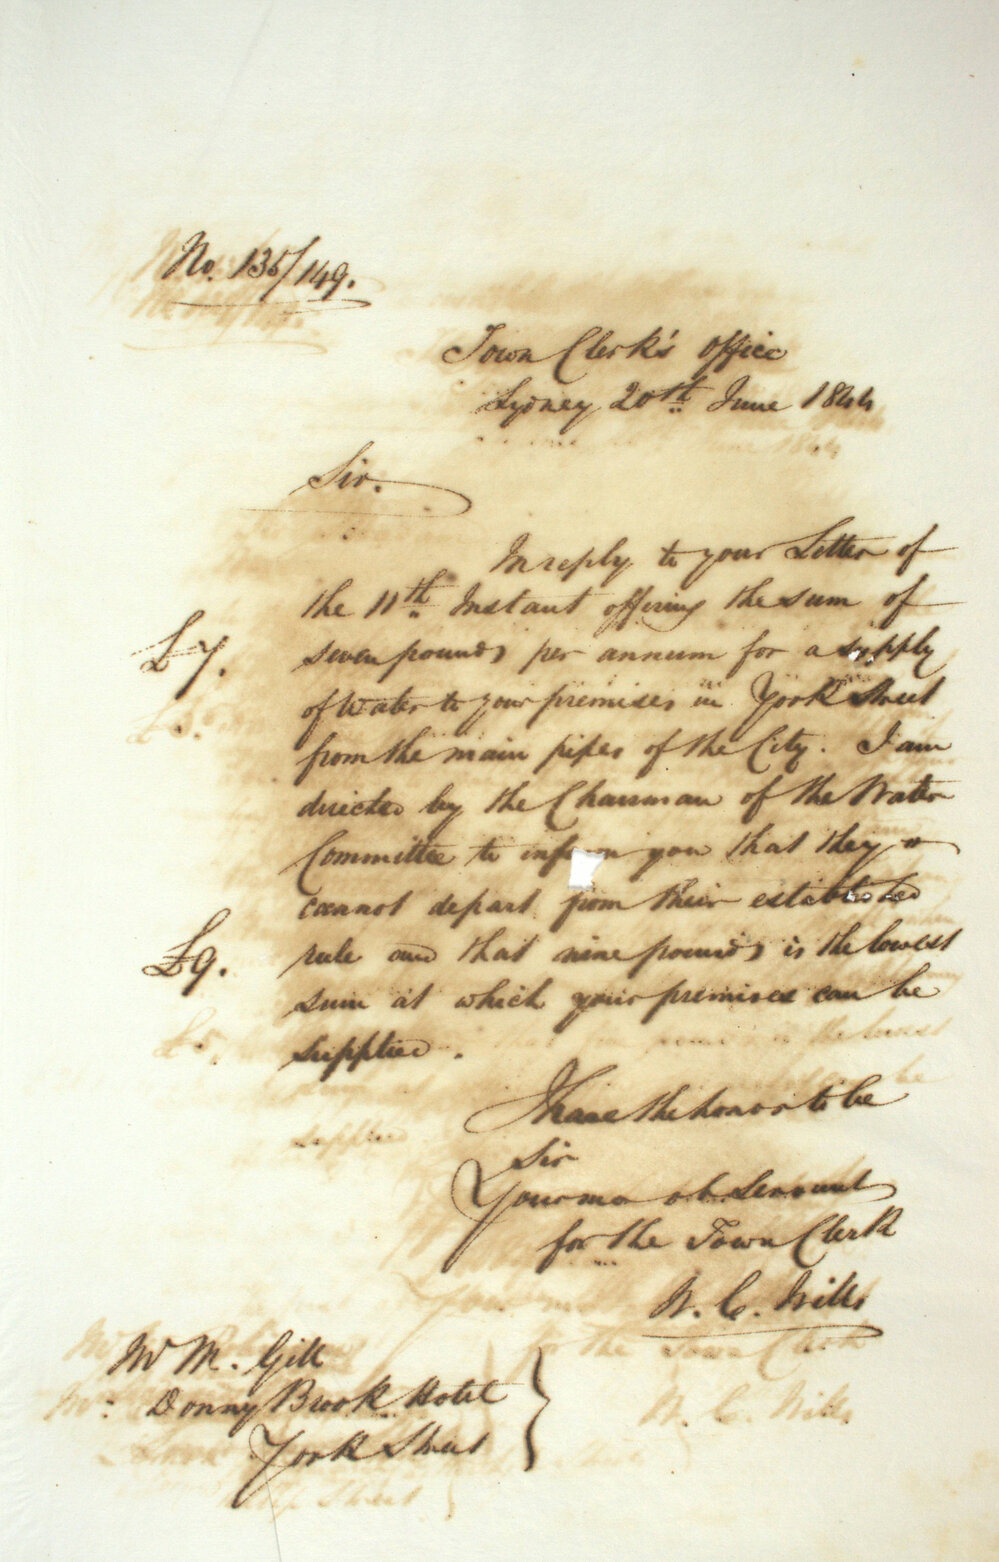 No. 135/149.
Town Clerk's Office
Sydney 20th June 1844
Sir.
In reply to your Letter of
the 11th Instant offering the sum of
£7. seven pounds per annum for a supply
of Water to your premises in York Street
from the main pipes of the City. I am
directed by the Chairman of the Water
Committee to inform you that they
cannot depart from their established
£9. rule and that nine pounds is the lowest
sum at which your premises can be
supplied.
I have the honor to be
Sir
Your mo ob. Servant
for the Town Clerk
W. C. Wills
Mr M. Gill
Donny Brook Hotel
York Street